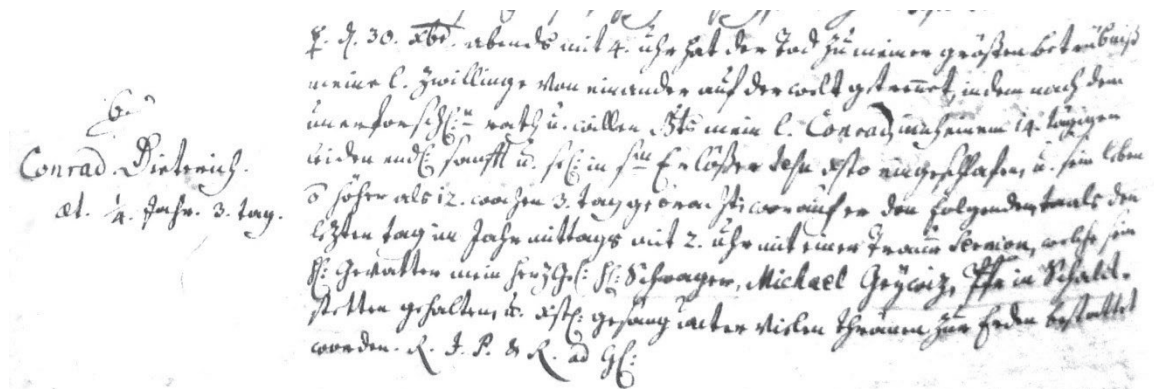 6.
Conrad Dieterich.
æt. 1/4. Jahr. 3. tag.
d. 30. Xbr. abends mit 4. uhr hat der Tod zu meiner grösten betrübniß
meine l. Zwillinge von einander auf der welt getrennet, indem nach dem
unerforschl: rath u. willen Gts mein l. Conrad, nach einem 14. tägigen
leiden endl. sanfft u. seel: in sm Erlößer Jesu Xsto eingeschlafen, u. sein leben
höher als 12. wochen 3. tag gebracht, worauf er den folgenden, als den
lezten tag im Jahr mittags mit 2. uhr mit einer Trauer Sermon, welche sein
H: Gevatter mein herzgel: H: Schwager, Michael Geywiz, Pfr in Schalk-
stetten gehalten, u. Xstl: gesang unter vielen thränen, zur Erden bestattet
worden. R. I. P. & R. ad Gl: